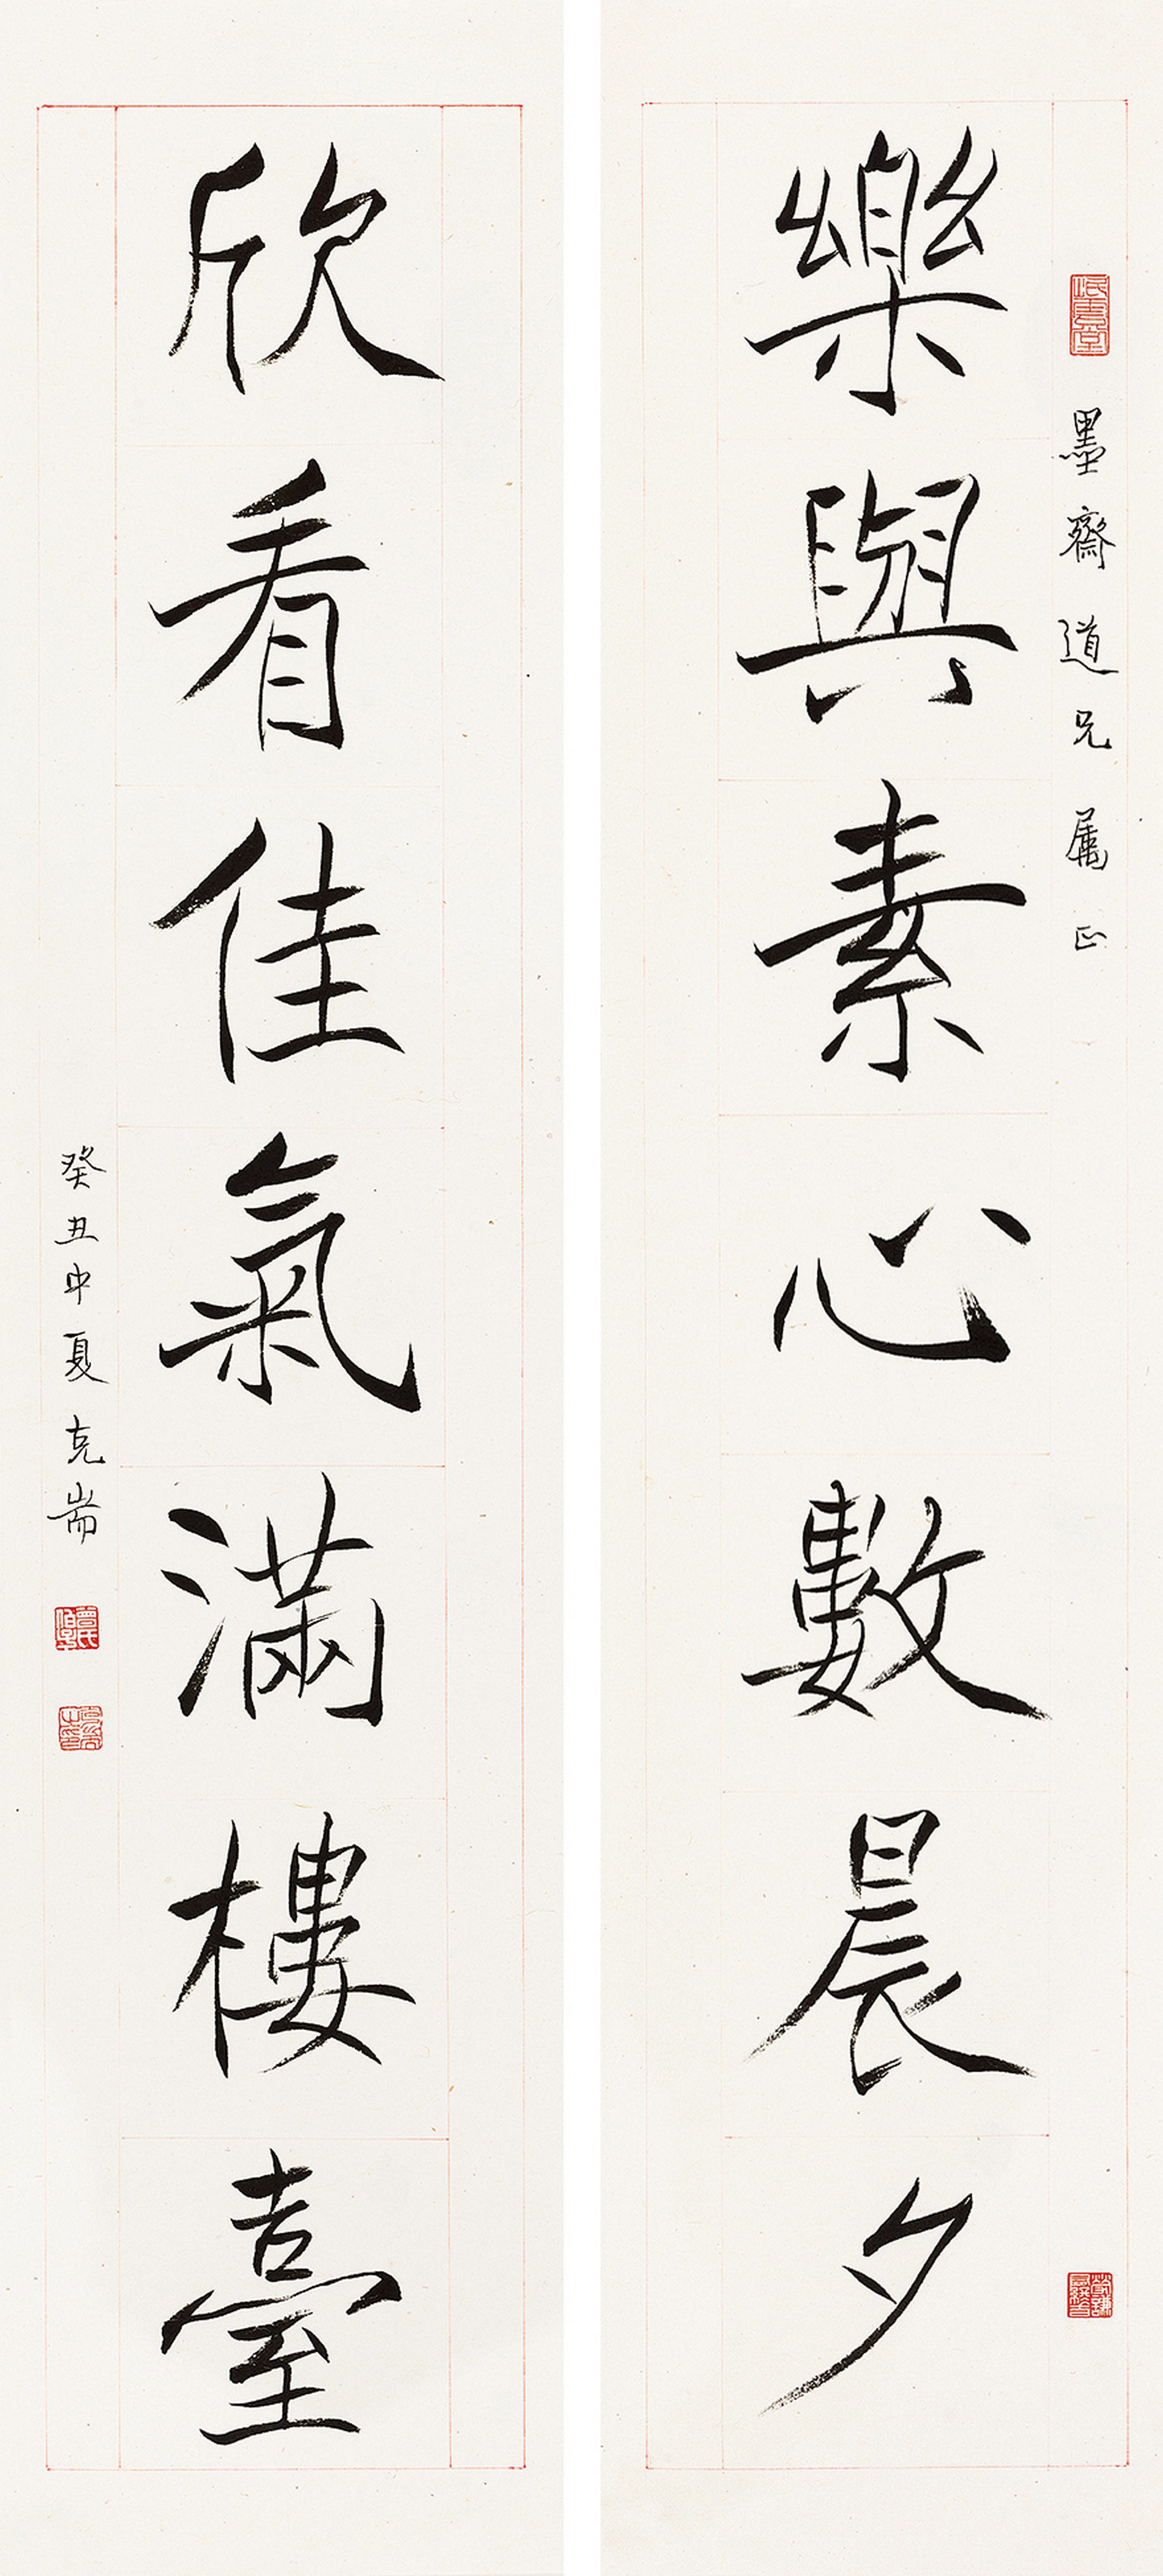 墨齋道兄屬正
樂與素心數晨夕
欣看佳氣滿樓臺
癸丑中夏克耑